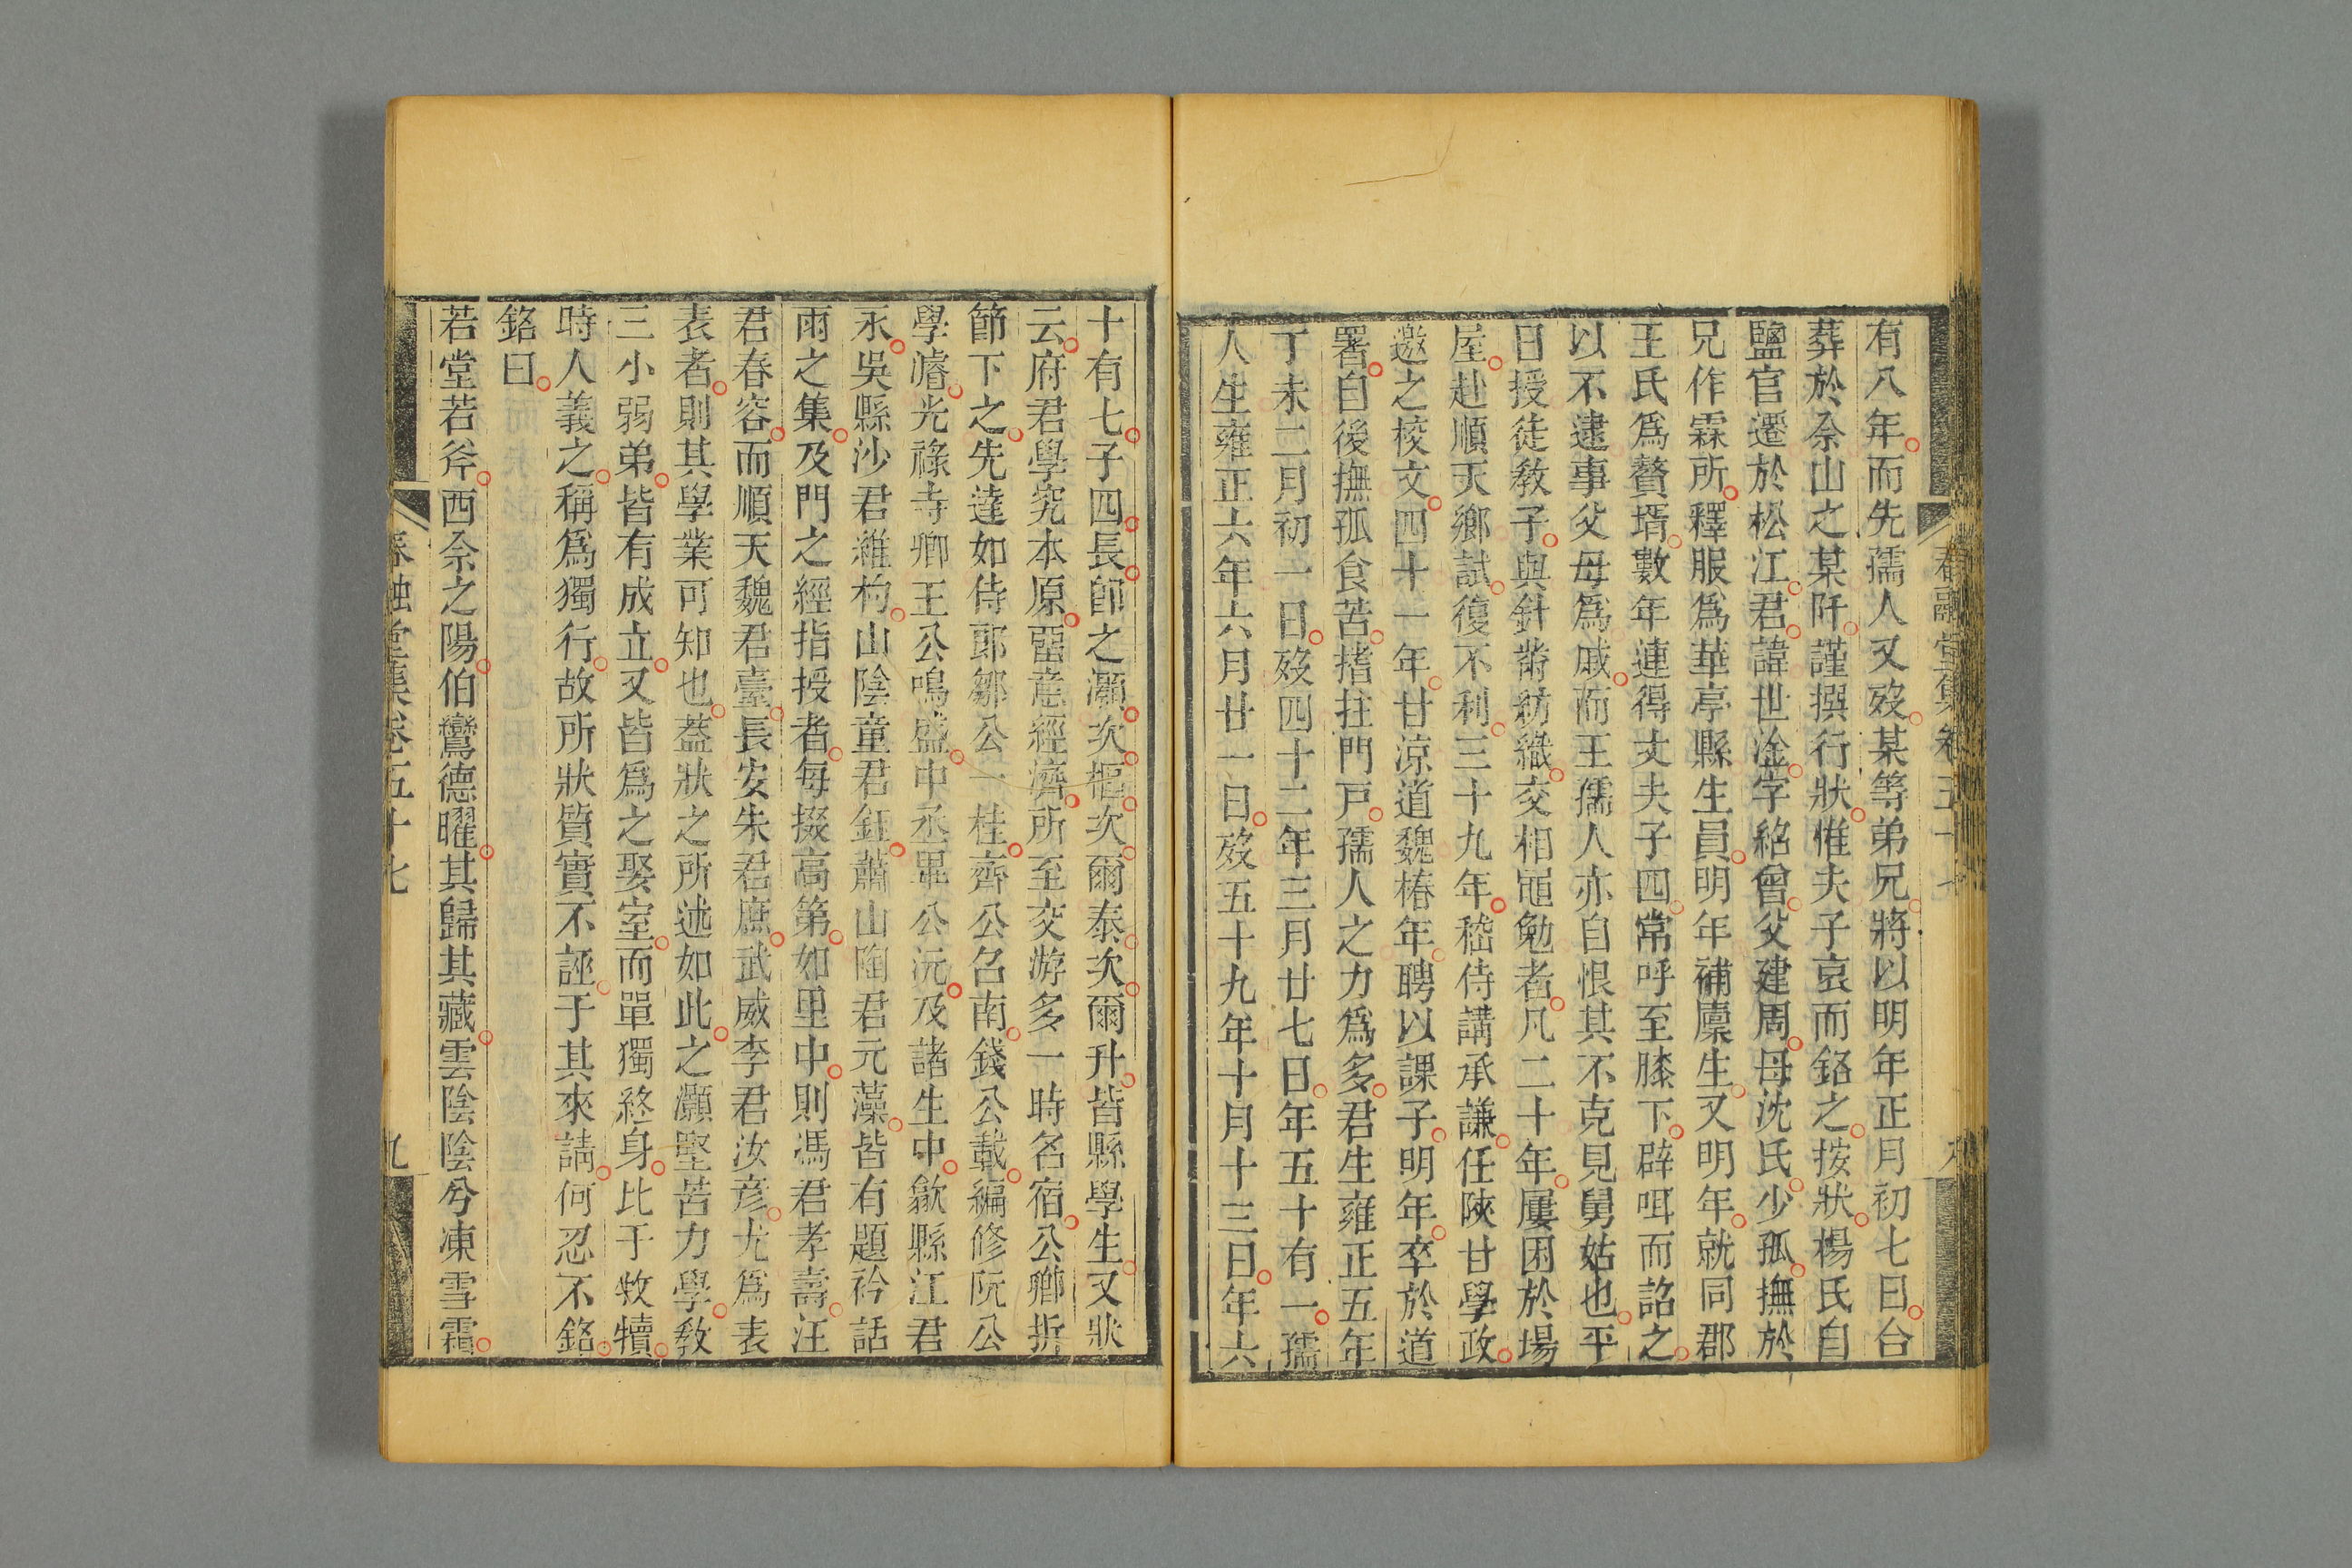 有八年而先孺人又歿某等弟兄將以明年正月初七日合
葬於佘山之某阡謹撰行狀惟夫子哀而銘之按狀楊氏自
鹽官遷於松江君諱世淦字紹曾父建周母沈氏少孤撫於
兄作霖所釋服爲華亭縣生員明年補廩生又明年就同郡
王氏爲贅壻數年連得丈夫子四常呼至膝下辟咡而詔之
以不逮事父母爲戚而王孺人亦自恨其不克見舅姑也平
日授徒敎子與針黹紡織交相黽勉者凡二十年屢困於場
屋赴順天鄉試復不利三十九年嵇侍講承謙任陝甘學政
邀之校文四十一年甘凉道魏椿年聘以課子明年卒於道
署自後撫孤食苦撐拄門戸孺人之力爲多君生雍正五年
丁未二月初一日歿四十二年三月廿七日年五十有一孺
人生雍正六年六月廿一日歿五十九年十月十三日年六
十有七子四長卽之灝次樞次爾泰次爾升皆縣學生又狀
云府君學究本原畱意經濟所至交游多一時名宿公卿折
節下之先達如侍郎鄒公一桂齊公召南錢公載編修阮公
學濬光祿寺卿王公鳴盛中丞畢公沅及諸生中歙縣江君
永吳縣沙君維杓山陰童君鈺蕭山陶君元藻皆有題衿話
雨之集及門之經指授者每掇高第如里中則馮君孝壽汪
君春容而順天魏君臺長安朱君庶武威李君汝彦尤爲表
表者則其學業可知也蓋狀之所述如此之灝堅苦力學敎
三小弱弟皆有成立又皆爲之娶室而單獨終身比于牧犢
時人義之稱爲獨行故所狀質實不誣于其來請何忍不銘
銘曰
若堂若斧西佘之陽伯鸞德曜其歸其藏雲陰陰兮凍雪霜
春融堂集卷五十七
九